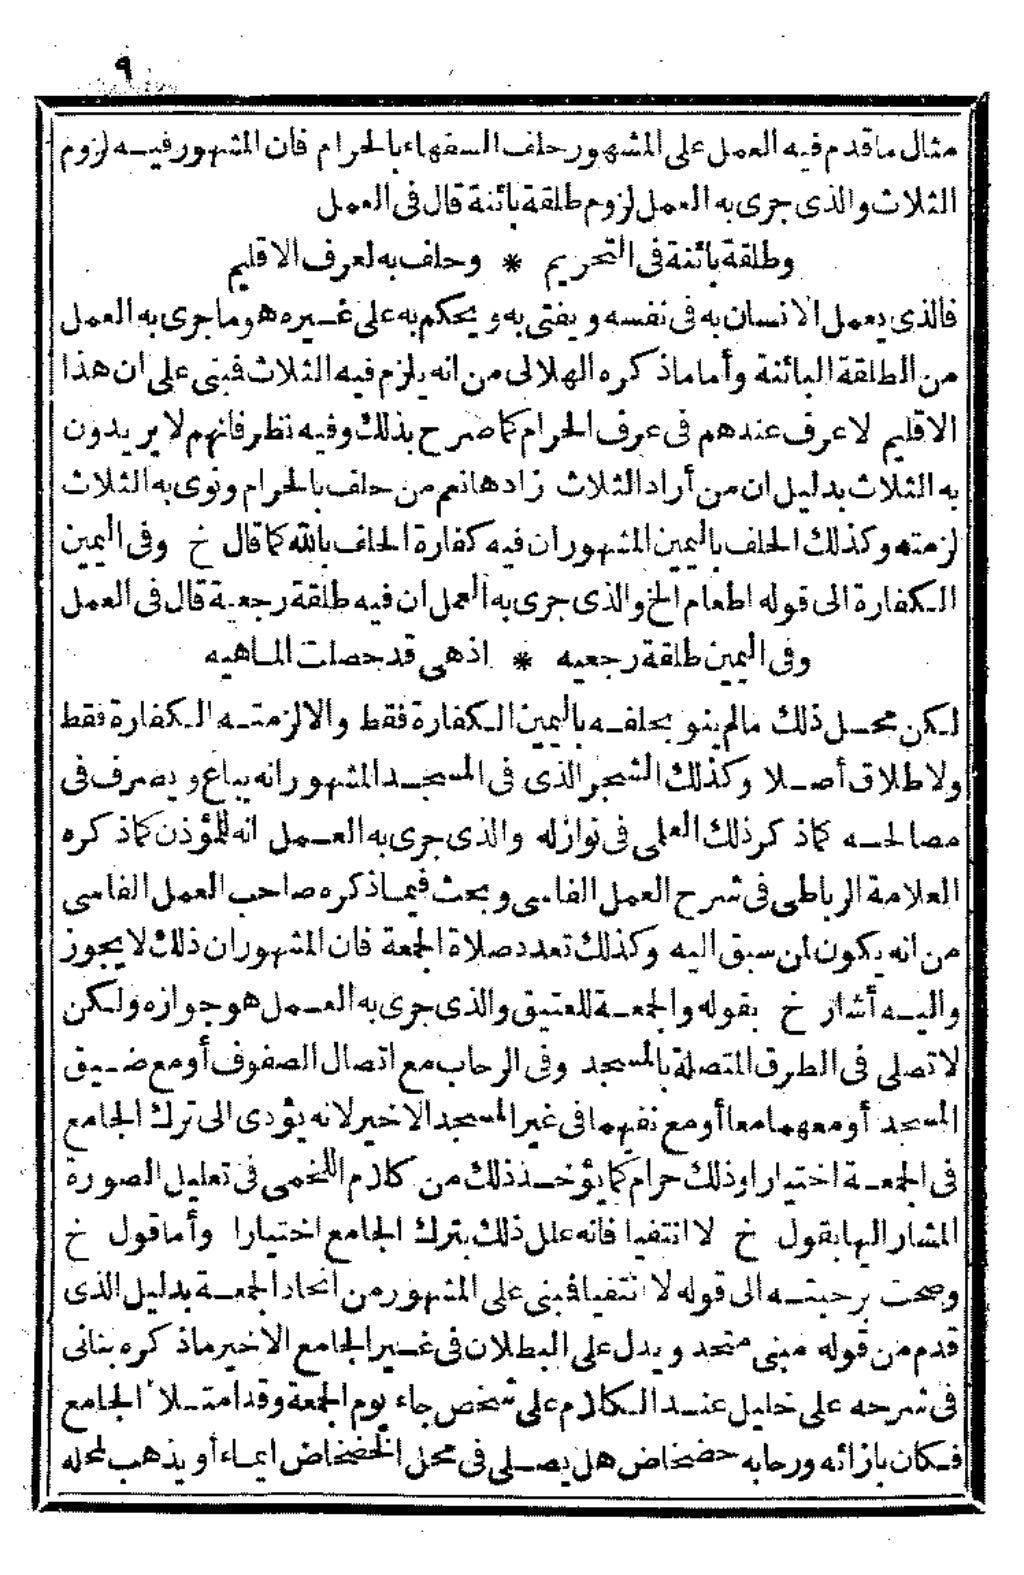 ٩
مثال ماقدم فيه العمل على المشهور حلف السفهاء بالحرام فان المشهور فيه لزوم
الثلاث والذى جرى به العمل لزوم طلقة بائنة قال فى العمل
وطلقة بائنة فى التحريم * وحلف به لعرف الاقليم
فالذى يعمل الانسان به فى نفسه ويفتى به ويحكم به على غيره هو ماجرى به العمل
من الطلقة البائنة وأما ماذكره الهلالى من انه يلزم فيه الثلاث فبنى على ان هذا
الاقليم لا عرف عندهم فى عرف الحرام كما صرح بذلك وفيه نظر فانهم لا يريدون
به الثلاث بدليل ان من أراد الثلاث زادها نعم من حلف بالحرام ونوى به الثلاث
لزمته وكذلك الحلف باليمين المشهور ان فيه كفارة الحلف بالله كما قال خ وفى اليمين
الكفارة الى قوله اطعام الخ والذى جرى به العمل ان فيه طلقة رجعية قال فى العمل
وفى اليمين طلقة رجعيه * اذهى قد حصلت الماهيه
لكن محل ذلك مالم ينو بحلفه باليمين الكفارة فقط والا لزمته الكفارة فقط
ولا طلاق أصلا وكذلك الشجر الذى فى المسجد المشهور انه يباع ويصرف فى
مصالحه كماذكر ذلك العلمى فى نوازله والذى جرى به العمل انه للمؤذن كماذكره
العلامة الرباطى فى شرح العمل الفاسى وبحث فيماذكره صاحب العمل الفاسى
من انه يكون لمن سبق اليه وكذلك تعدد صلاة الجمعة فان المشهور ان ذلك لا يجوز
واليه أشار خ بقوله والجمعة للعتيق والذى جرى به العمل هو جوازه ولكن
لاتصلى فى الطرق المتصلة بالمسجد وفى الرحاب مع اتصال الصفوف أو مع ضيق
المسجد أو معهما معا أو مع نفيهما فى غير المسجد الاخير لانه يؤدى الى ترك الجامع
فى الجمعة اختيارا وذلك حرام كما يؤخذ ذلك من كلام اللخمى فى تعليل الصورة
المشار اليها بقول خ لا انتفيا فانه علل ذلك بترك الجامع اختيارا وأما قول خ
وصحت برحبته الى قوله لا انتفيا فبنى على المشهور من اتحاد الجمعة بدليل الذى
قدم من قوله مبنى متحد ويدل على البطلان فى غير الجامع الاخير ماذكره بنانى
فى شرحه على خليل عند الكلام على شخص جاء يوم الجمعة وقد امتلأ الجامع
فكان بازائه ورحابه خضخاض هل يصلى فى محل الخضخاض ايماء أو يذهب لمحله